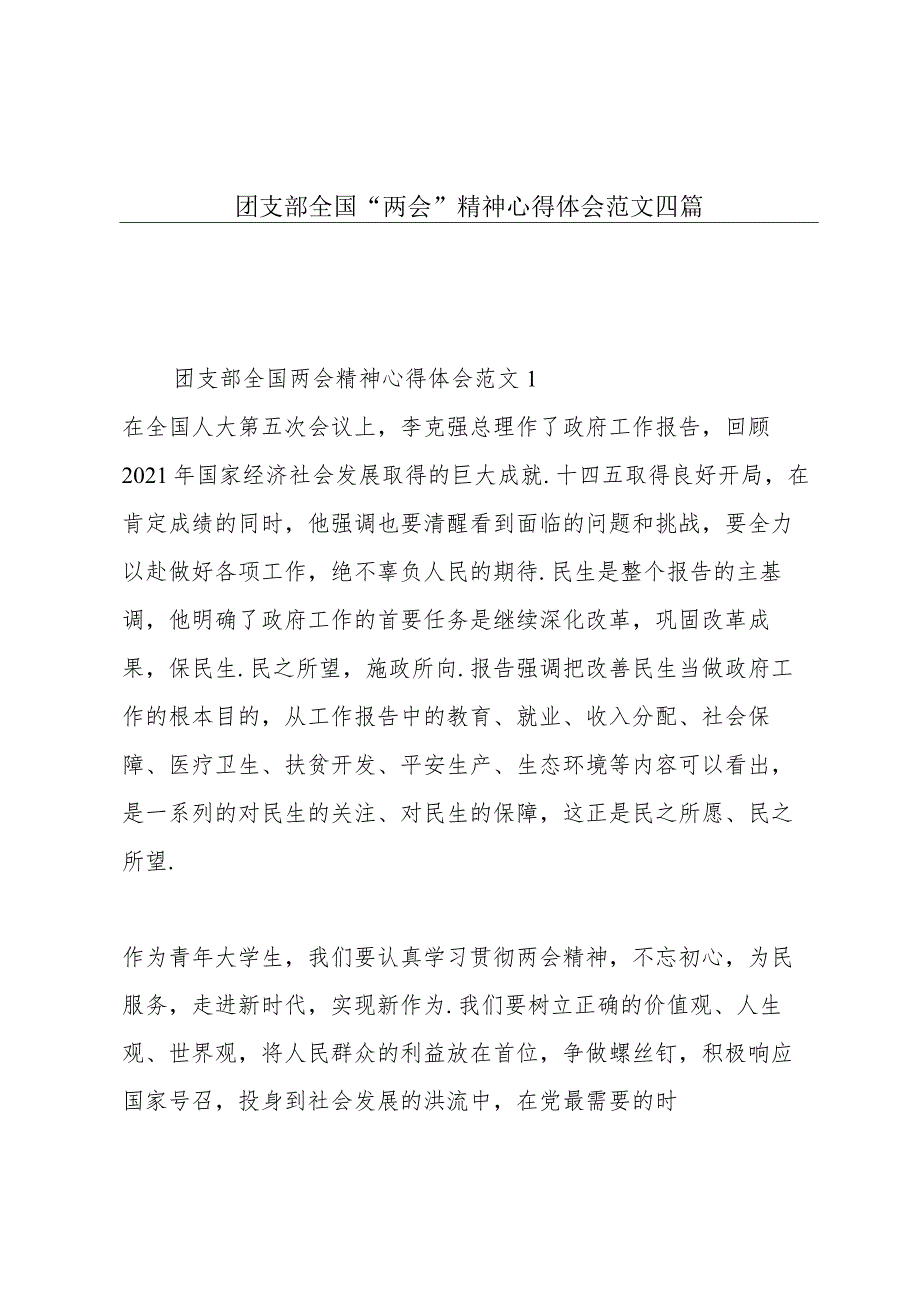 团支部全国“两会”精神心得体会范文四篇
团支部全国两会精神心得体会范文1
在全国人大第五次会议上，李克强总理作了政府工作报告，回顾
2021年国家经济社会发展取得的巨大成就.十四五取得良好开局，在
肯定成绩的同时，他强调也要清醒看到面临的问题和挑战，要全力
以赴做好各项工作，绝不辜负人民的期待.民生是整个报告的主基
调，他明确了政府工作的首要任务是继续深化改革，巩固改革成
果，保民生.民之所望，施政所向.报告强调把改善民生当做政府工
作的根本目的，从工作报告中的教育、就业、收入分配、社会保
障、医疗卫生、扶贫开发、平安生产、生态环境等内容可以看出，
是一系列的对民生的关注、对民生的保障，这正是民之所愿、民之
所望.
作为青年大学生，我们要认真学习贯彻两会精神，不忘初心，为民
服务，走进新时代，实现新作为.我们要树立正确的价值观、人生
观、世界观，将人民群众的利益放在首位，争做螺丝钉，积极响应
国家号召，投身到社会发展的洪流中，在党最需要的时